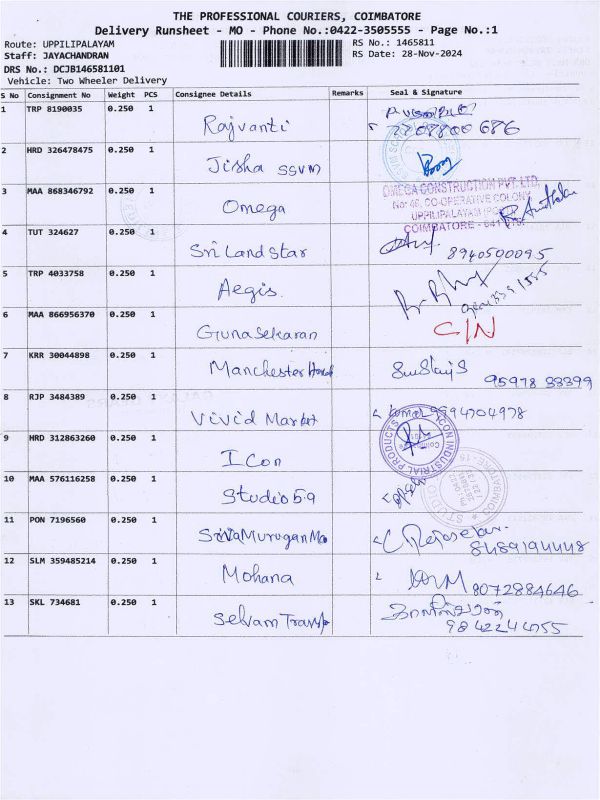 THE PROFESSIONAL COURIERS, COIMBATORE
Delivery Runsheet - MO - Phone No.:0422-3505555 - Page No.:1
Route: UPPILIPALAYAM
RS No.: 1465811
Staff: JAYACHANDRAN
RS Date: 28-Nov-2024
DRS No.: DCJB146581101
Vehicle: Two Wheeler Delivery
S No Consignment No Weight PCS Consignee Details Remarks Seal & Signature
1 TRP 8190035 0.250 1 Rajvanti
2 HRD 326478475 0.250 1 Jisha SSVM
3 MAA 868346792 0.250 1 Omega
OMEGA CONSTRUCTION PVT. LTD.
No: 46, CO-OPERATIVE COLONY
UPPILIPALAYAM
COIMBATORE - 641
4 TUT 324627 0.250 1 Sri Land Star 8940500095
5 TRP 4033758 0.250 1 Aegis.
6 MAA 866956370 0.250 1 Gunasekaran C/N
7 KRR 30044898 0.250 1 Manchester 95978 33399
8 RJP 3484389 0.250 1 Vivid Market 9994704978
9 HRD 312863260 0.250 1 Icon
ICON INDUSTRIAL PRODUCTS
10 MAA 576116258 0.250 1 Studio 59
COIMBATORE-15
11 PON 7196560 0.250 1 Siva Murugan 8489194448
12 SLM 359485214 0.250 1 Mohana 8072884646
13 SKL 734681 0.250 1 Selvam Transp 9842244755